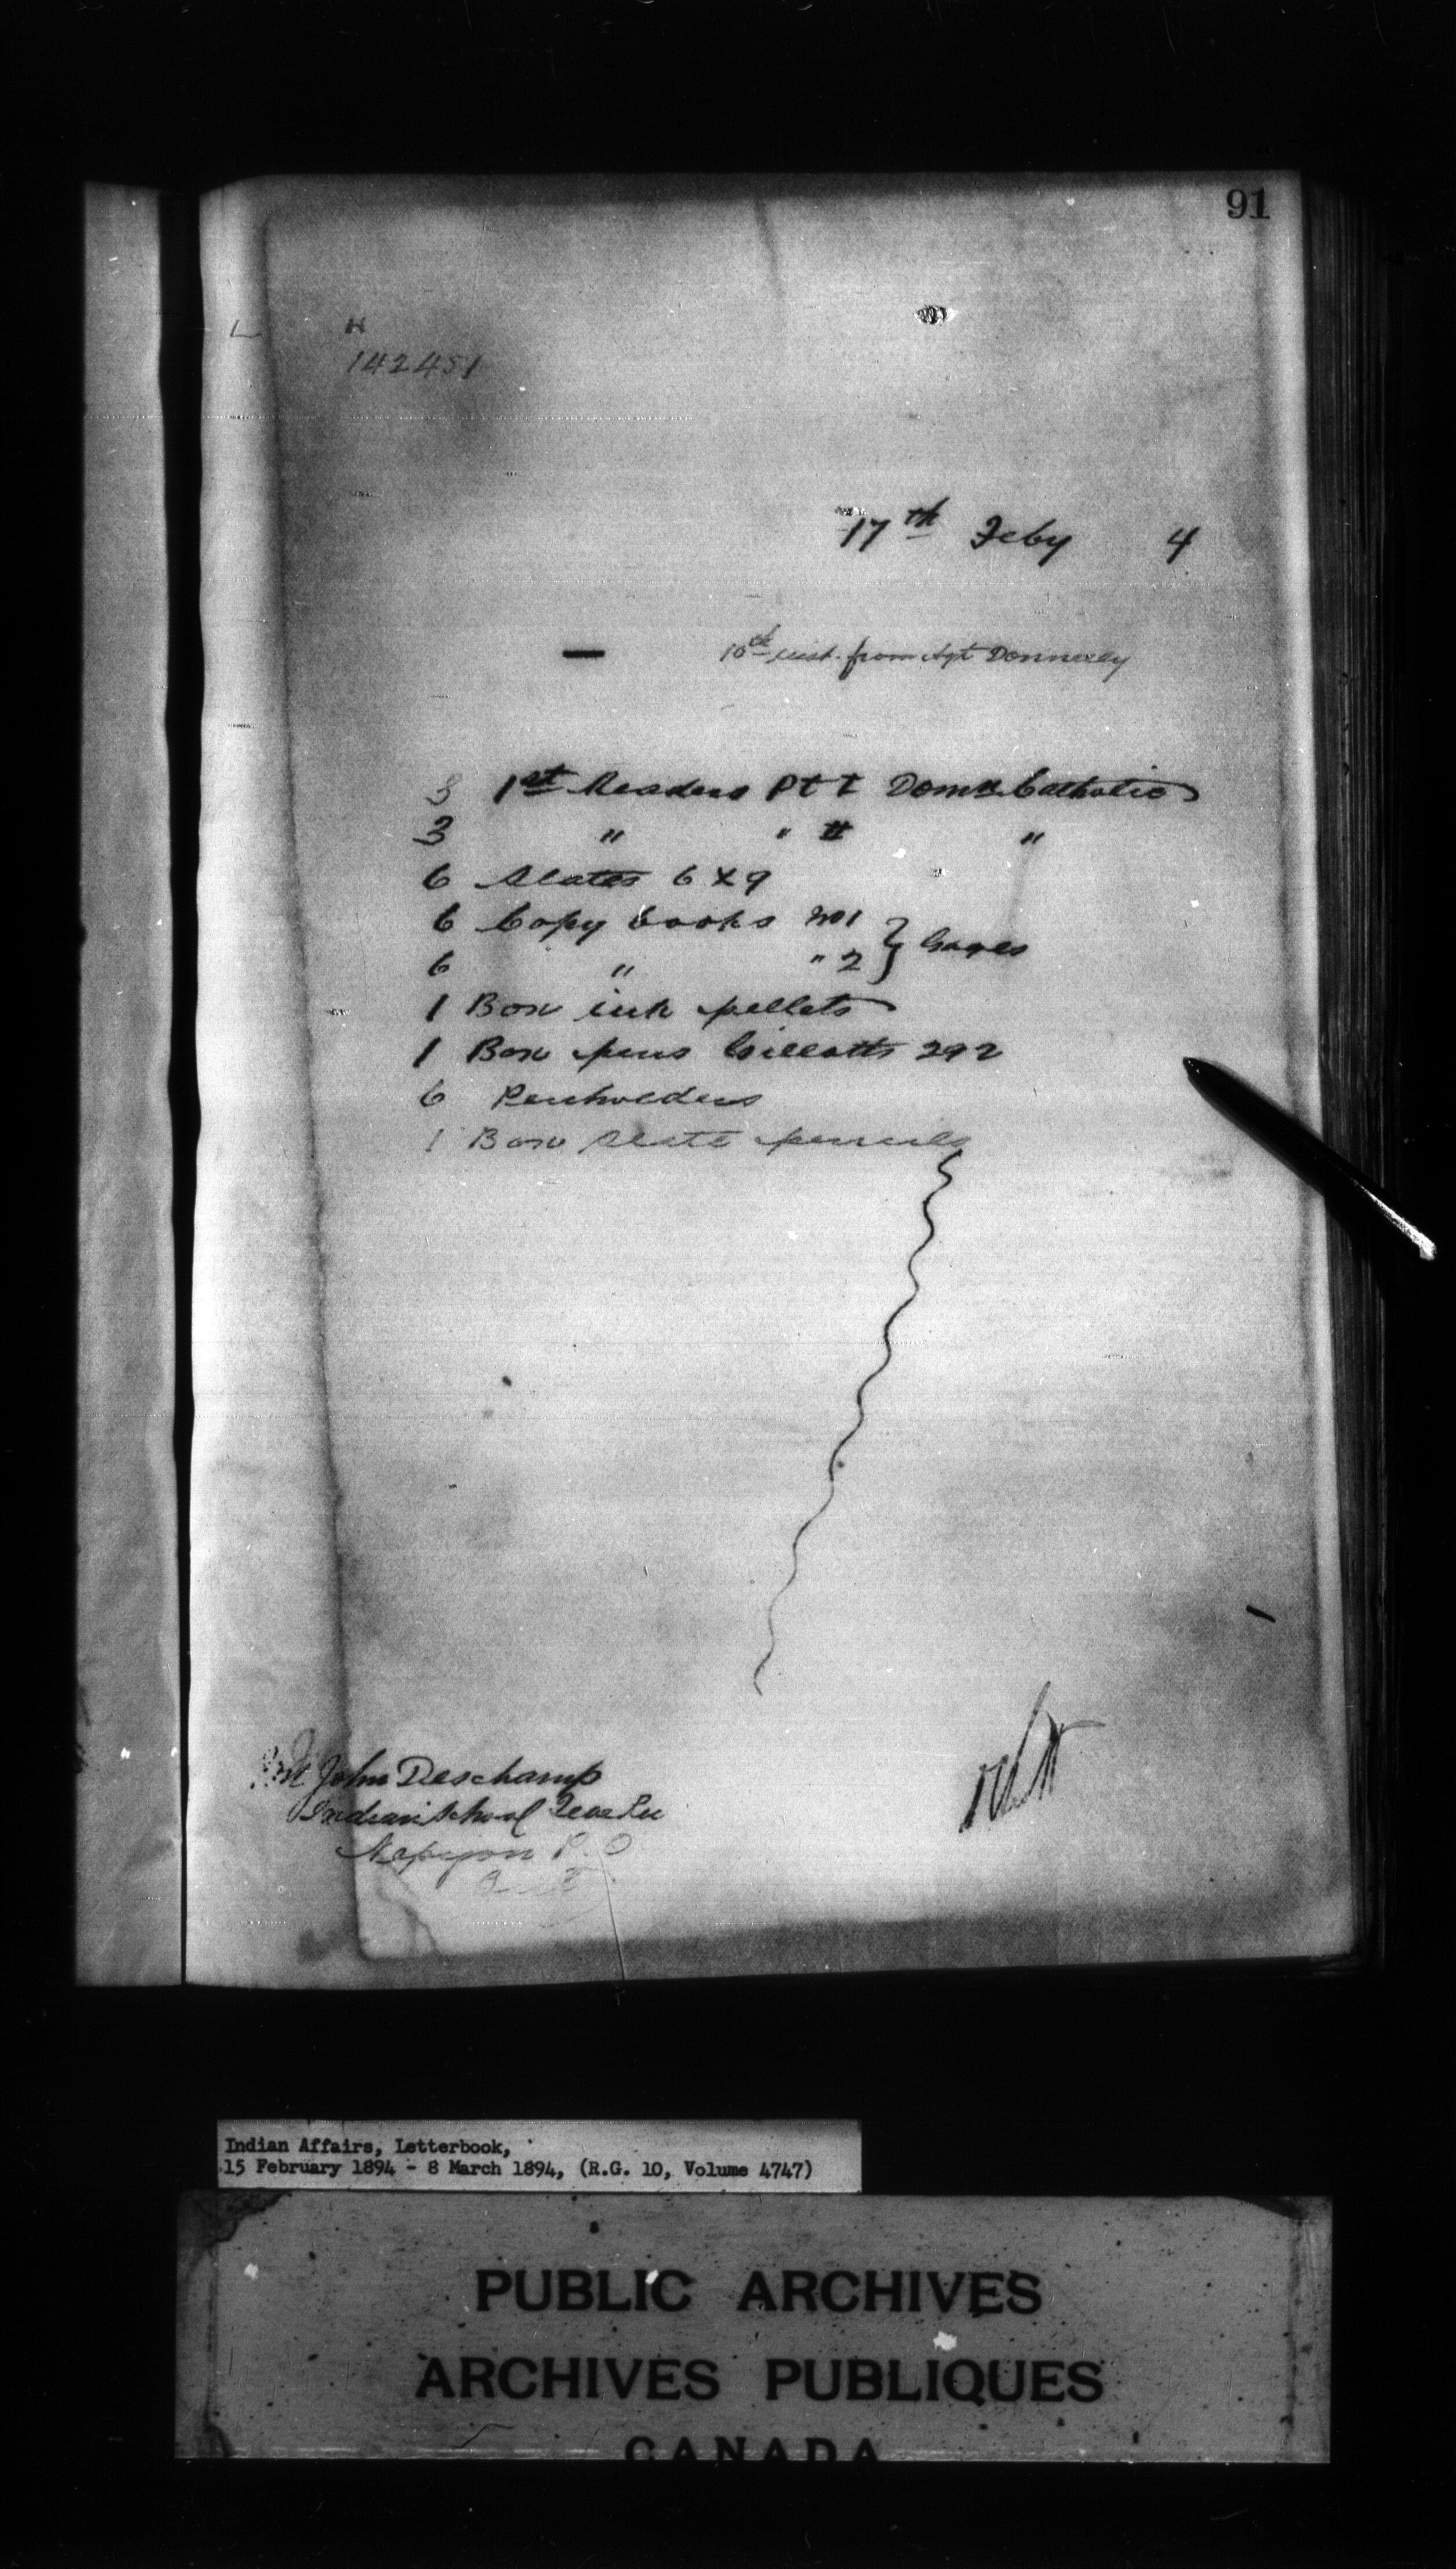 91
H
142451
17th Feby 4
10th inst. from Agt Donnelly
3 1st Readers Pt I Domn. Catholic
3 " " II "
6 Slates 6 x 9
6 Copy books No 1 } Gages
6 " " 2
1 Box ink pellets
1 Box pens Gillotts 292
6 Penholders
1 Box slate pencils
John Deschamp
Indian School Teacher
Nepigon P.O
Ont
Indian Affairs, Letterbook,
15 February 1894 - 8 March 1894, (R.G. 10, Volume 4747)
PUBLIC ARCHIVES
ARCHIVES PUBLIQUES
CANADA